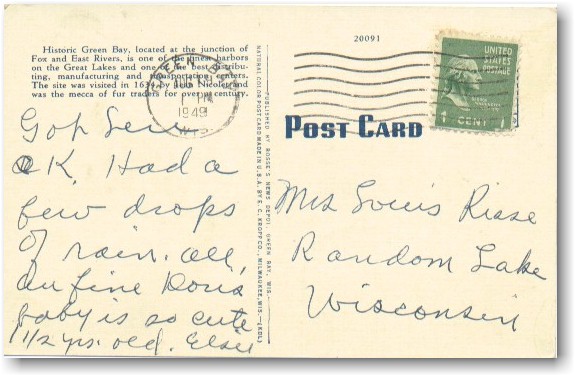 Historic Green Bay, located at the junction of
Fox and East Rivers, is one of the finest harbors
on the Great Lakes and one of the best distribu-
ting, manufacturing and transportation centers.
The site was visited in 1634 by Nicolet and
was the mecca of fur traders for over a century.
GREEN BAY
PM
1949
WIS.
20091
UNITED
STATES
POSTAGE
1 CENT 1
POST CARD
PUBLISHED BY ROSSE'S NEWS DEPOT, GREEN BAY, WIS.
NATURAL COLOR POST CARD MADE IN U.S.A. BY E. C. KROPP CO., MILWAUKEE, WIS.—(KDL)
Got here
OK. Had a
few drops
of rain. all
are fine Doris
baby is so cute
1 1/2 yrs. old. Elsie
Mrs Louis Risse
Random Lake
Wisconsin